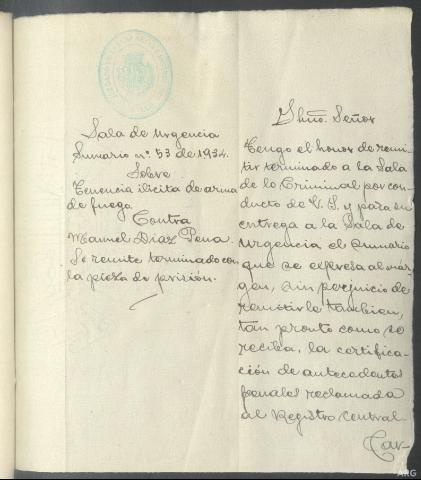 Sala de Urgencia
Sumario nº. 53 de 1934.
Sobre
Tenencia ilicita de arma
de fuego
Contra
Manuel Diaz Pena.
Se remite terminado con
la pieza de prisión.
Ilmo. Señor
Tengo el honor de remi-
tir terminado a la Sala
de lo Criminal por con-
ducto de V. S. y para su
entrega a la Sala de
Urgencia el sumario
que se expresa al már-
gen, sin perjuicio de
remitirle tambien,
tan pronto como se
reciba, la certifica-
ción de antecedentes
penales reclamada
al Registro Central.
Car-
ARG